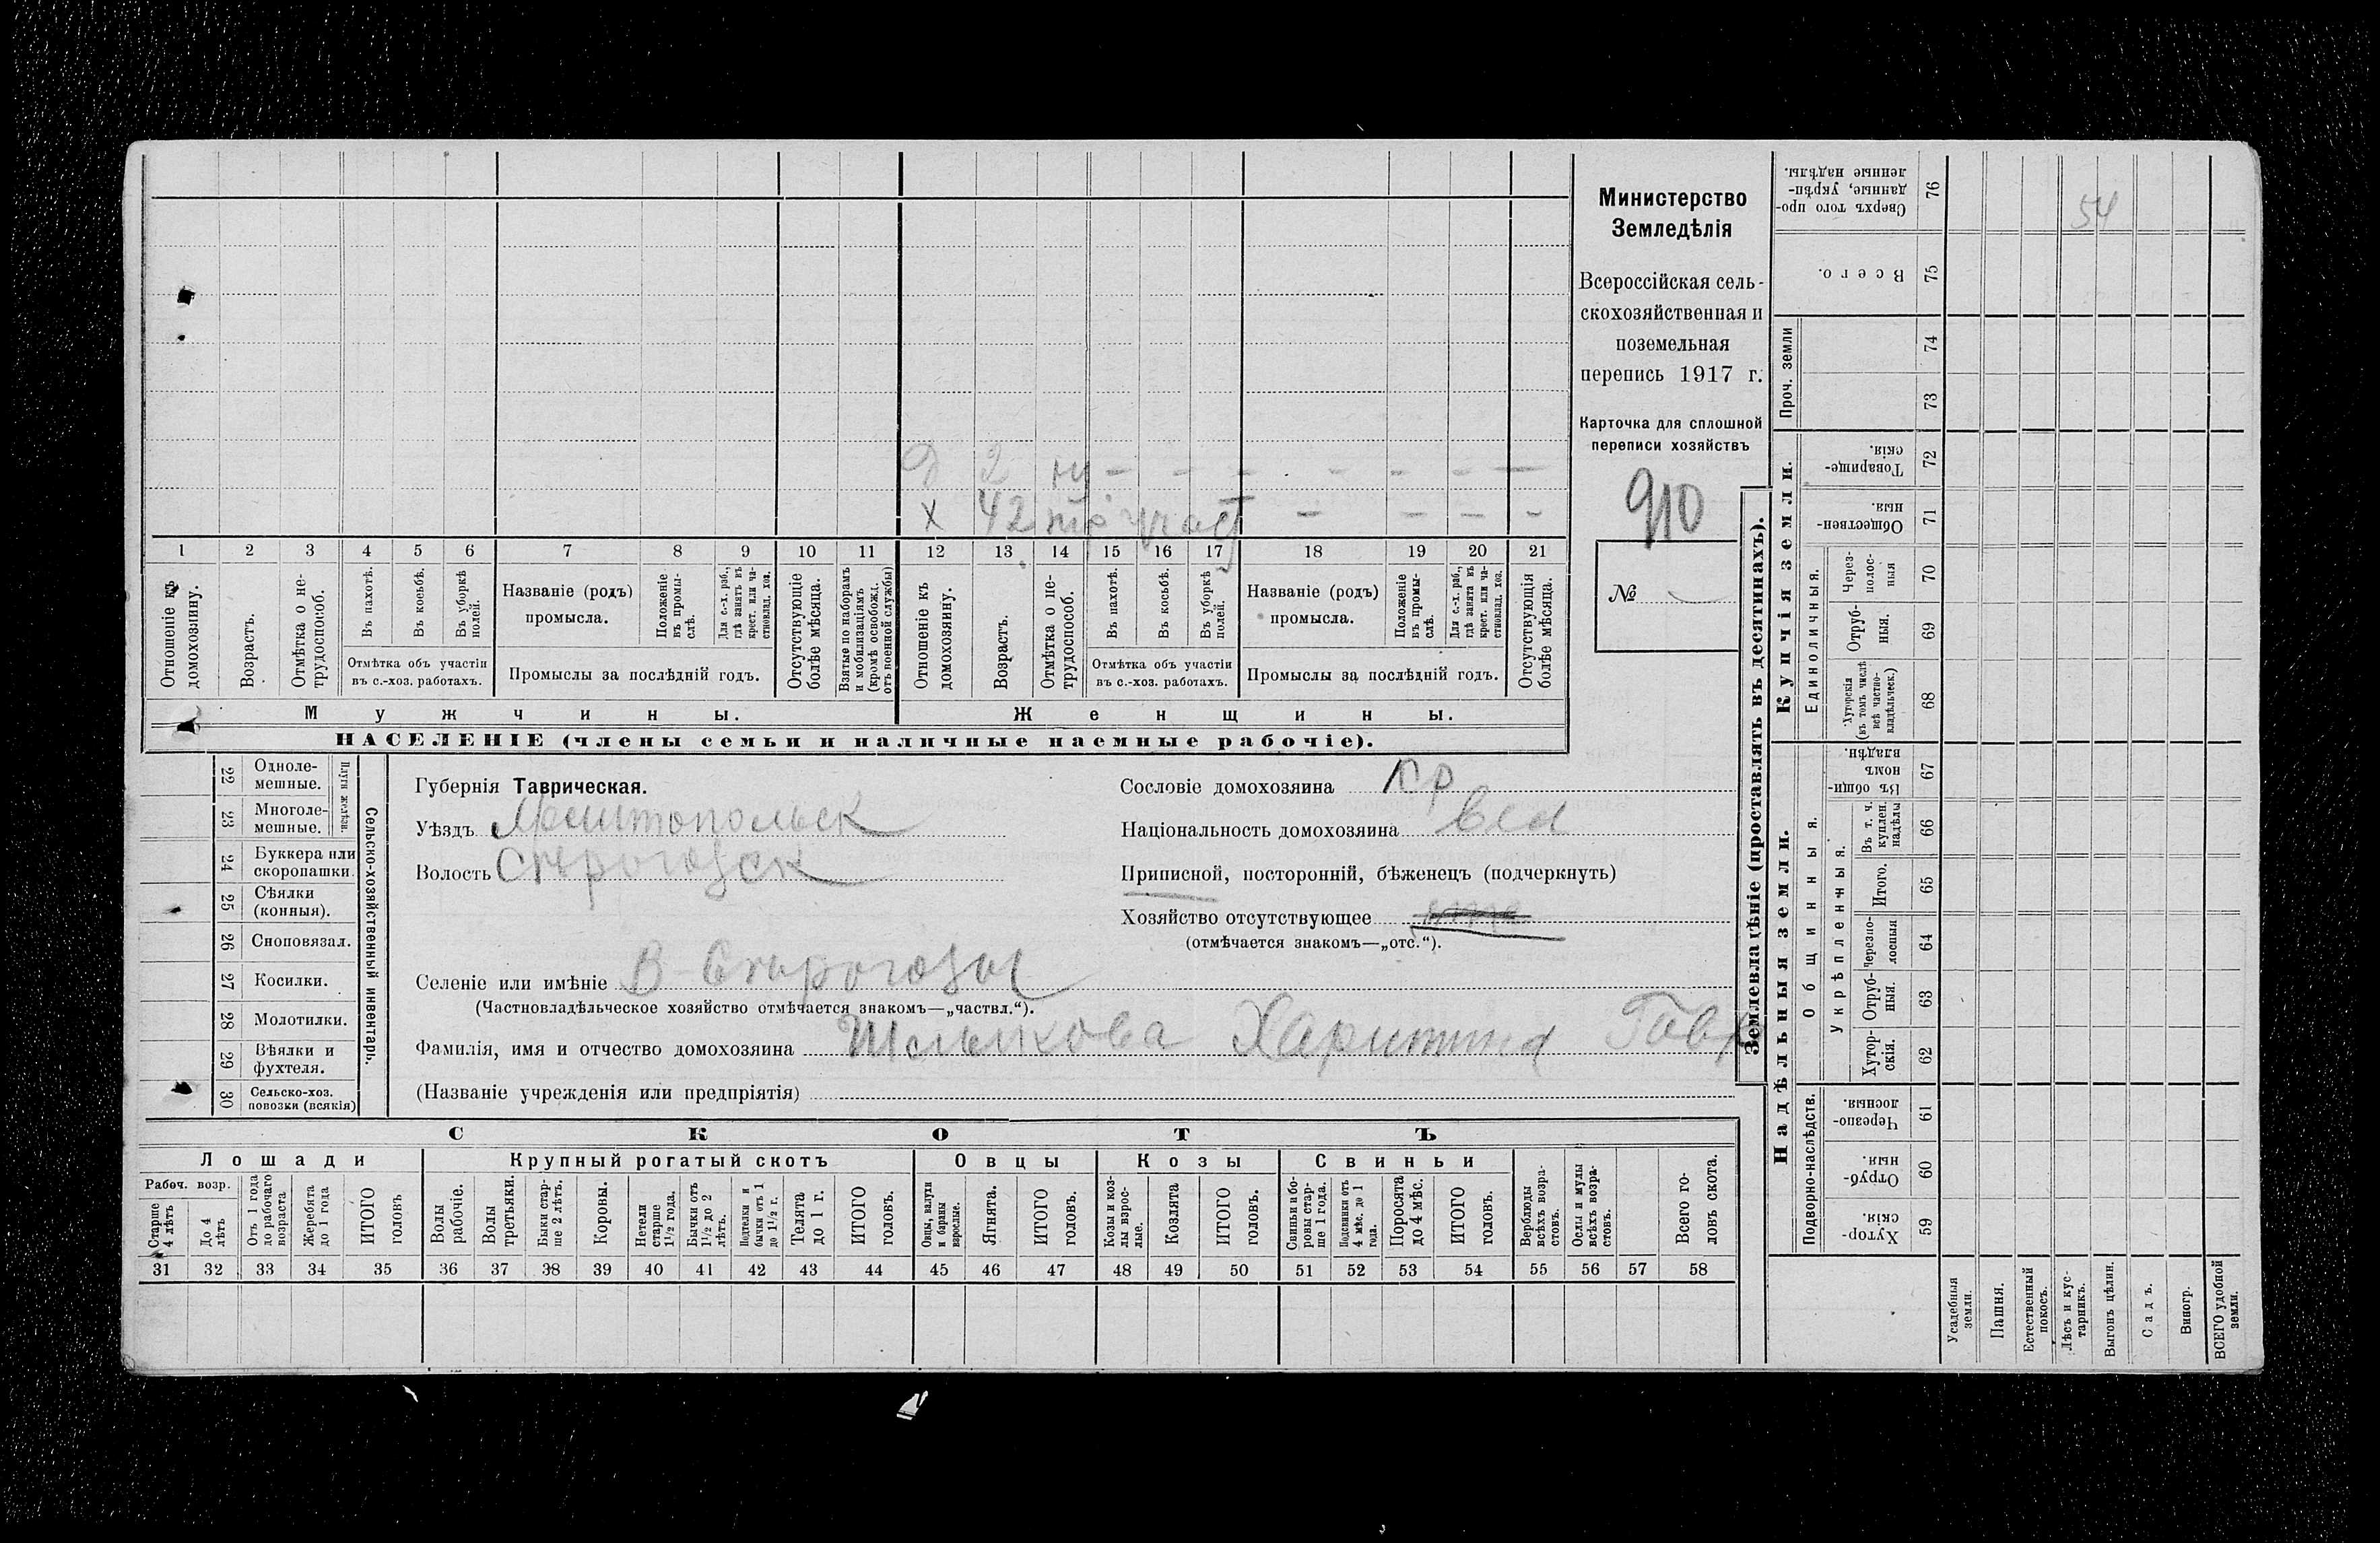 Министерство
Земледѣлія
Всероссійская сель-
скохозяйственная и
поземельная
перепись 1917 г.
Карточка для сплошной
переписи хозяйствъ
910
№
Д 2 – – – – – – –
х 42 – – – –
1 2 3 4 5 6 7 8 9 10 11 12 13 14 15 16 17 18 19 20 21
Отношеніе къ домохозяину.
Возрастъ.
Отмѣтка о не-трудоспособ.
Въ пахотѣ.
Въ косьбѣ.
Въ уборкѣ полей.
Отмѣтка объ участіи
въ с.-хоз. работахъ.
Названіе (родъ)
промысла.
Положеніе въ промы-слѣ.
Для с.-х. раб., гдѣ занятъ въ крест. или ча-стновлад. хоз.
Промыслы за послѣдній годъ.
Отсутствующіе болѣе мѣсяца.
Взятые по наборамъ и мобилизаціямъ (кромѣ освобожд. отъ военной службы)
Отношеніе къ домохозяину.
Возрастъ.
Отмѣтка о не-трудоспособ.
Въ пахотѣ.
Въ косьбѣ.
Въ уборкѣ полей.
Отмѣтка объ участіи
въ с.-хоз. работахъ.
Названіе (родъ)
промысла.
Положеніе въ промы-слѣ.
Для с.-х. раб., гдѣ занята въ крест. или ча-стновлад. хоз.
Промыслы за послѣдній годъ.
Отсутствующія болѣе мѣсяца.
Мужчины. Женщины.
НАСЕЛЕНІЕ (члены семьи и наличные наемные рабочіе).
Сельско-хозяйственный инвентарь.
Плуги желѣзн.
22 Одноле-мешные.
23 Многоле-мешные.
24 Буккера или скоропашки.
25 Сѣялки (конныя).
26 Сноповязал.
27 Косилки.
28 Молотилки.
29 Вѣялки и фухтеля.
30 Сельско-хоз. повозки (всякія)
Губернія Таврическая.
Уѣздъ Мелитопольск
Волость
Селеніе или имѣніе
(Частновладѣльческое хозяйство отмѣчается знакомъ—„частвл.“).
Фамилія, имя и отчество домохозяина
(Названіе учрежденія или предпріятія)
Сословіе домохозяина кр
Національность домохозяина вел
Приписной, посторонній, бѣженецъ (подчеркнуть)
Хозяйство отсутствующее
(отмѣчается знакомъ—„отс.“).
СКОТЪ
Лошади Крупный рогатый скотъ Овцы Козы Свиньи
Рабоч. возр.
Старше 4 лѣтъ
До 4 лѣтъ
Отъ 1 года до рабочаго возраста
Жеребята до 1 года
ИТОГО головъ
Волы рабочіе.
Волы третьяки.
Быки стар-ше 2 лѣтъ.
Коровы.
Нетели старше 1½ года.
Бычки отъ 1½ до 2 лѣтъ.
Подтелки и бычки отъ 1 до 1½ г.
Телята до 1 г.
ИТОГО головъ.
Овцы, валухи и бараны взрослые.
Ягнята.
ИТОГО головъ.
Козы и коз-лы взрос-лые.
Козлята
ИТОГО головъ.
Свиньи и бо-ровы стар-ше 1 года.
Подсвинки отъ 4 мѣс. до 1 года.
Поросята до 4 мѣс.
ИТОГО головъ.
Верблюды всѣхъ возра-стовъ.
Ослы и мулы всѣхъ возра-стовъ.
Всего го-ловъ скота.
31 32 33 34 35 36 37 38 39 40 41 42 43 44 45 46 47 48 49 50 51 52 53 54 55 56 57 58
Землевладѣніе (проставлять въ десятинахъ).
54
76 Сверхъ того про-данные, укрѣп-ленные надѣлы.
75 Всего.
Проч. земли
74
73
Купчія земли.
72 Товарище-скія.
71 Обществен-ныя.
Единоличныя.
70 Через-полос-ныя
69 Отруб-ныя.
68 Хуторскія (въ томъ числѣ всѣ частно-владѣльческ.)
Надѣльныя земли.
Общинныя.
67 Въ общи-номъ владѣн.
Укрѣпленныя.
66 Въ т. ч. куплен. надѣлы
65 Итого.
64 Черезпо-лосныя
63 Отруб-ныя.
62 Хутор-скія.
Подворно-наслѣдств.
61 Черезпо-лосныя.
60 Отруб-ныя.
59 Хутор-скія.
Усадебныя земли.
Пашня.
Естественный покосъ.
Лѣсъ и кус-тарникъ.
Выгонъ цѣлин.
Садъ.
Виногр.
ВСЕГО удобной земли.